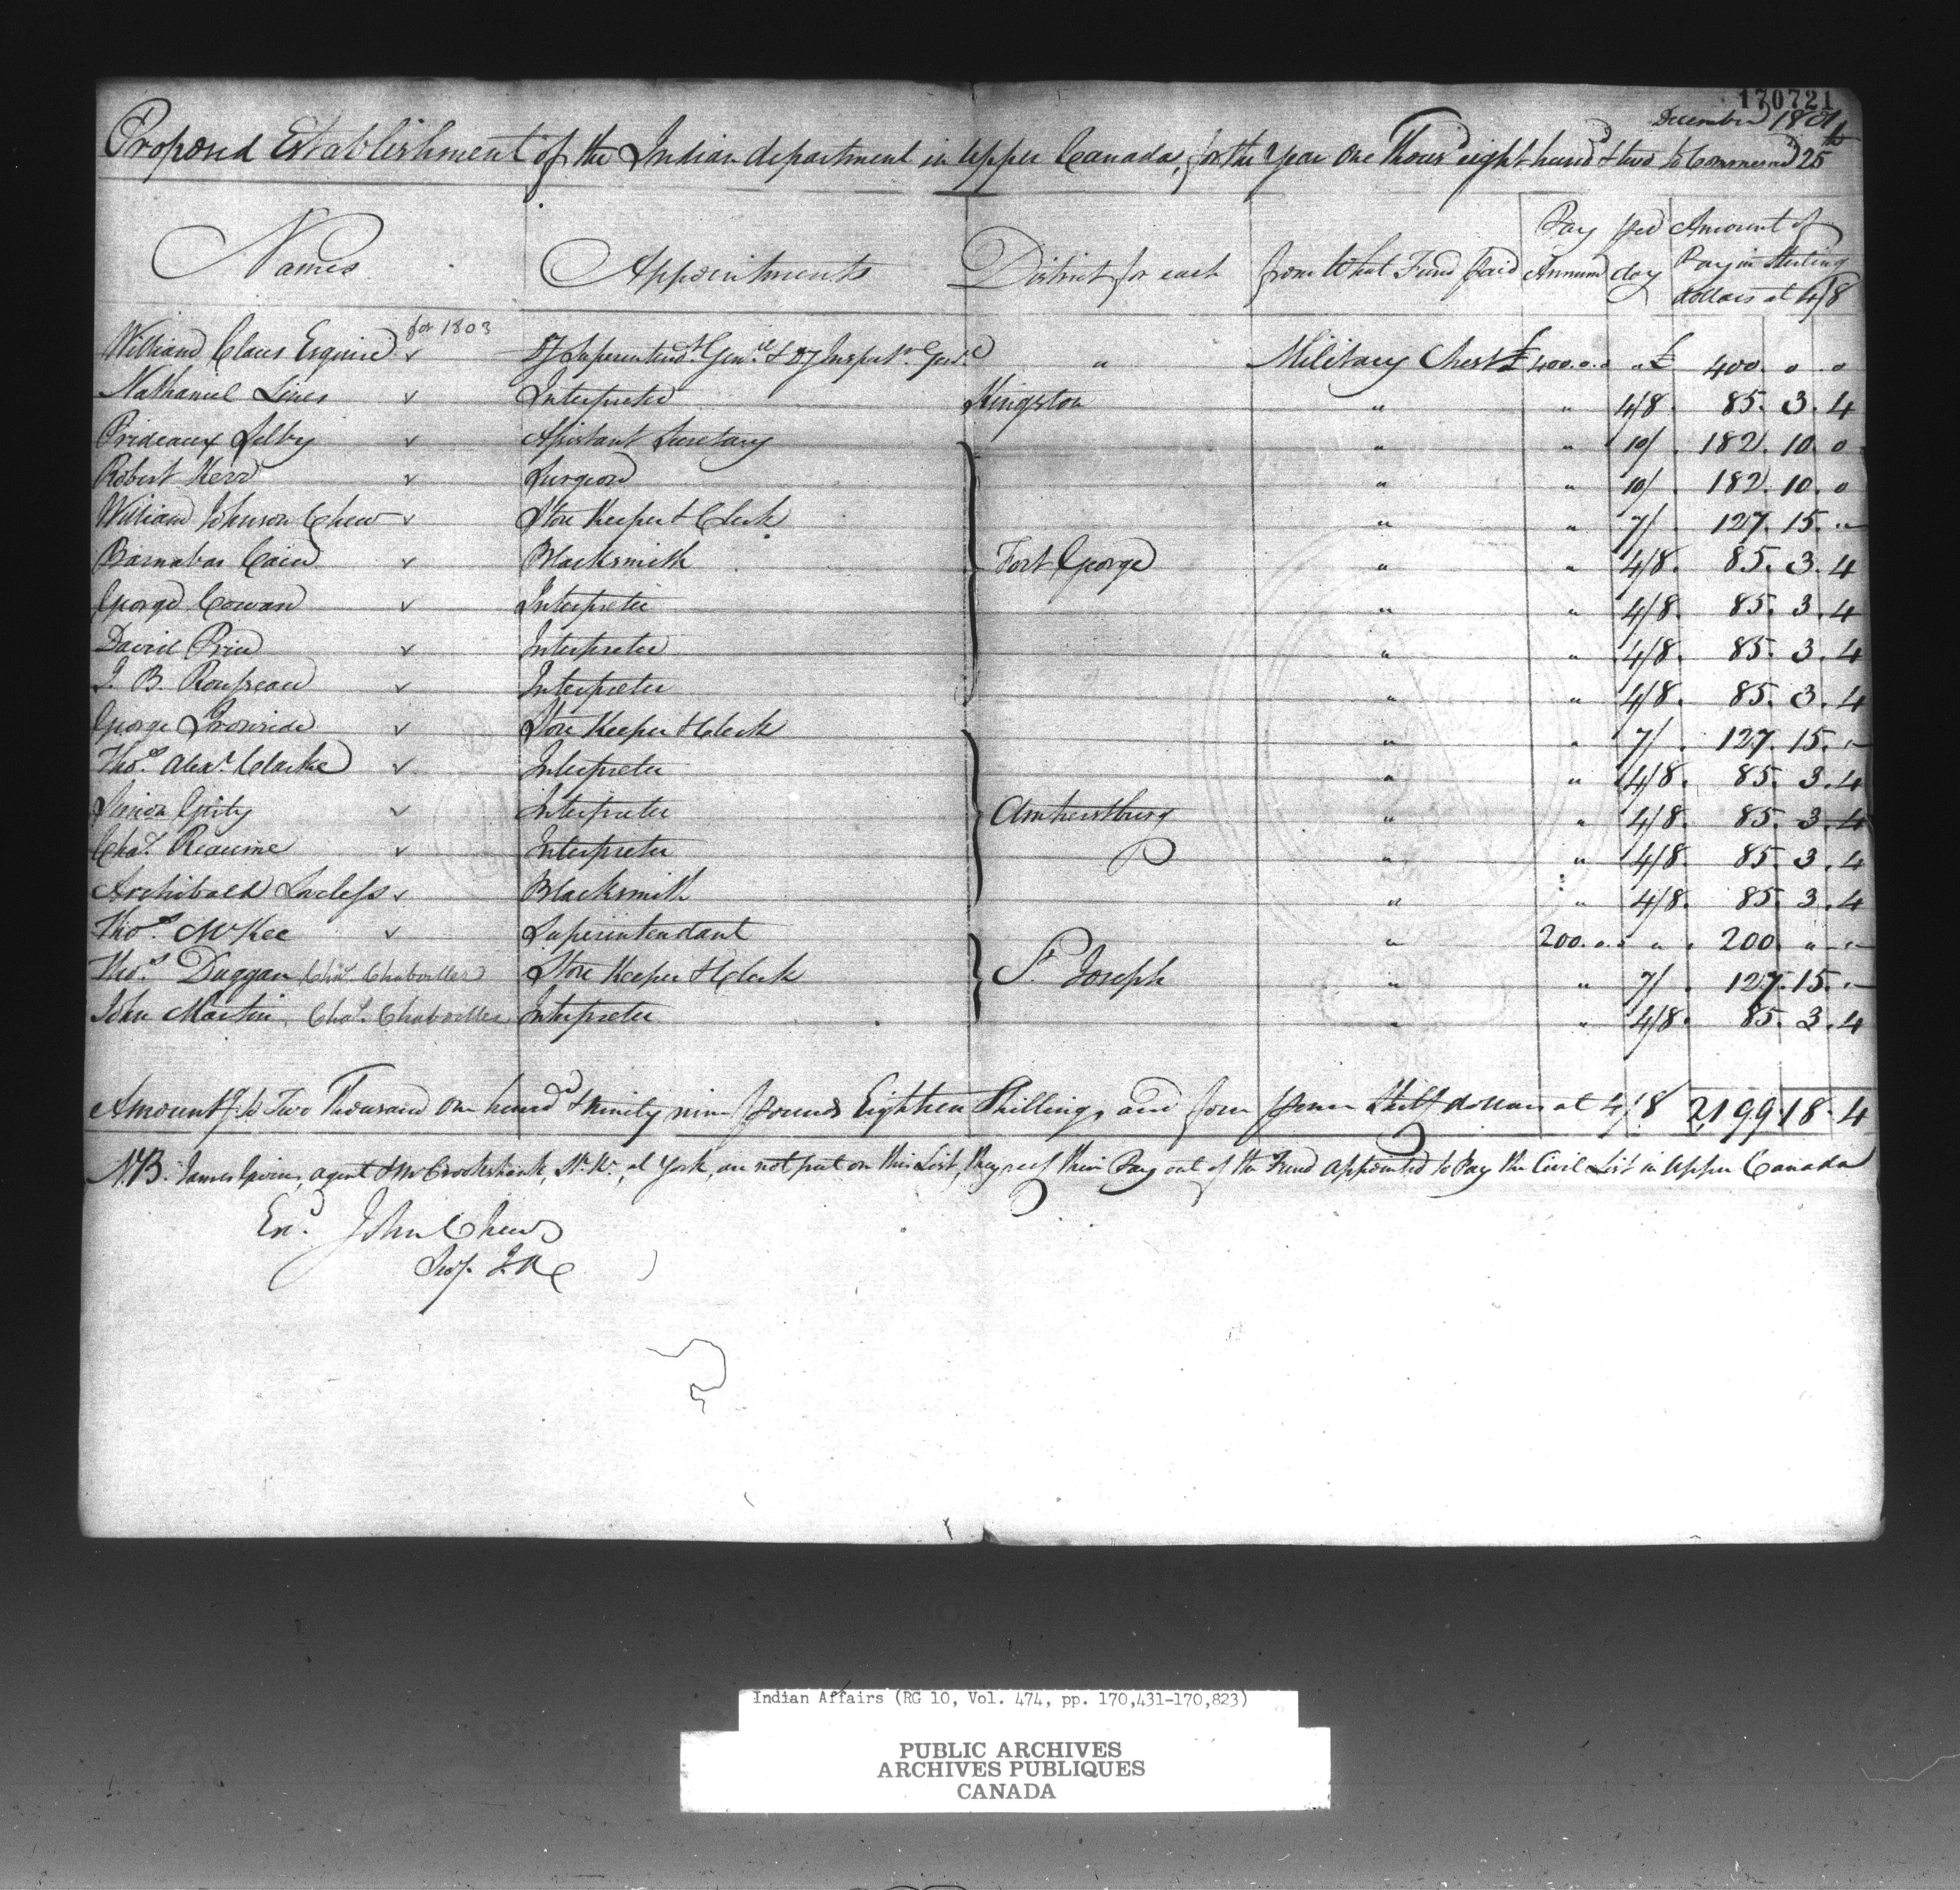 170721
December 1801
Proposed Establishment of the Indian department in Upper Canada, for the Year One Thousd eight hundd & two to Commence 25th
Names Appointments District for each from What Fund Paid Pay per Annum day Amount of Pay in Sterling dollars at 4/8
for 1803
William Claus Esquire v Dy Superintendt Genll & Dy Inspectr Genl " Military Chest £ 400.0.0 " £ 400. 0. 0
Nathaniel Lines v Interpreter Kingston " " 4/8. 85. 3. 4
Prideaux Selby v Assistant Secretary " " 10/. 182. 10. 0
Robert Kerr v Surgeon " " 10/. 182. 10. 0
William Johnson Chew v Store Keeper & Clerk " " 7/. 127. 15. "
Barnabas Cain v Blacksmith Fort George " " 4/8. 85. 3. 4
George Cowan v Interpreter " " 4/8. 85. 3. 4
David Price v Interpreter " " 4/8. 85. 3. 4
J. B. Rousseau v Interpreter " " 4/8. 85. 3. 4
George Ironside v Store Keeper & Clerk " " 7/. 127. 15. "
Thos. Alexr. Clarke v Interpreter " " 4/8. 85. 3. 4
Simon Girty v Interpreter Amherstburg " " 4/8. 85. 3. 4
Chas. Reaume v Interpreter " " 4/8. 85. 3. 4
Archibald Lovless v Blacksmith " " 4/8. 85. 3. 4
Thos. McKee v Superintendant " 200.0.0 " 200 " "
Thos. Duggan Chas. Chaboillez Store Keeper & Clerk St Joseph " " 7/. 127. 15. "
John Martin Chas. Chaboillez Interpreter " " 4/8. 85. 3. 4
Amountg. to Two Thousand One hundd & ninety nine pounds Eighteen Shillings and four pence Sterg dollars at 4/8 2,199. 18. 4
N.B. James Givins, agent & Mr Crookshank, St. Kr., at York, are not put on this List, they rece their Pay out of the Fund appointed to Pay the Civil List in Upper Canada
Exd. John Chew
Secy. I.A
Indian Affairs (RG 10, Vol. 474, pp. 170,431-170,823)
PUBLIC ARCHIVES
ARCHIVES PUBLIQUES
CANADA